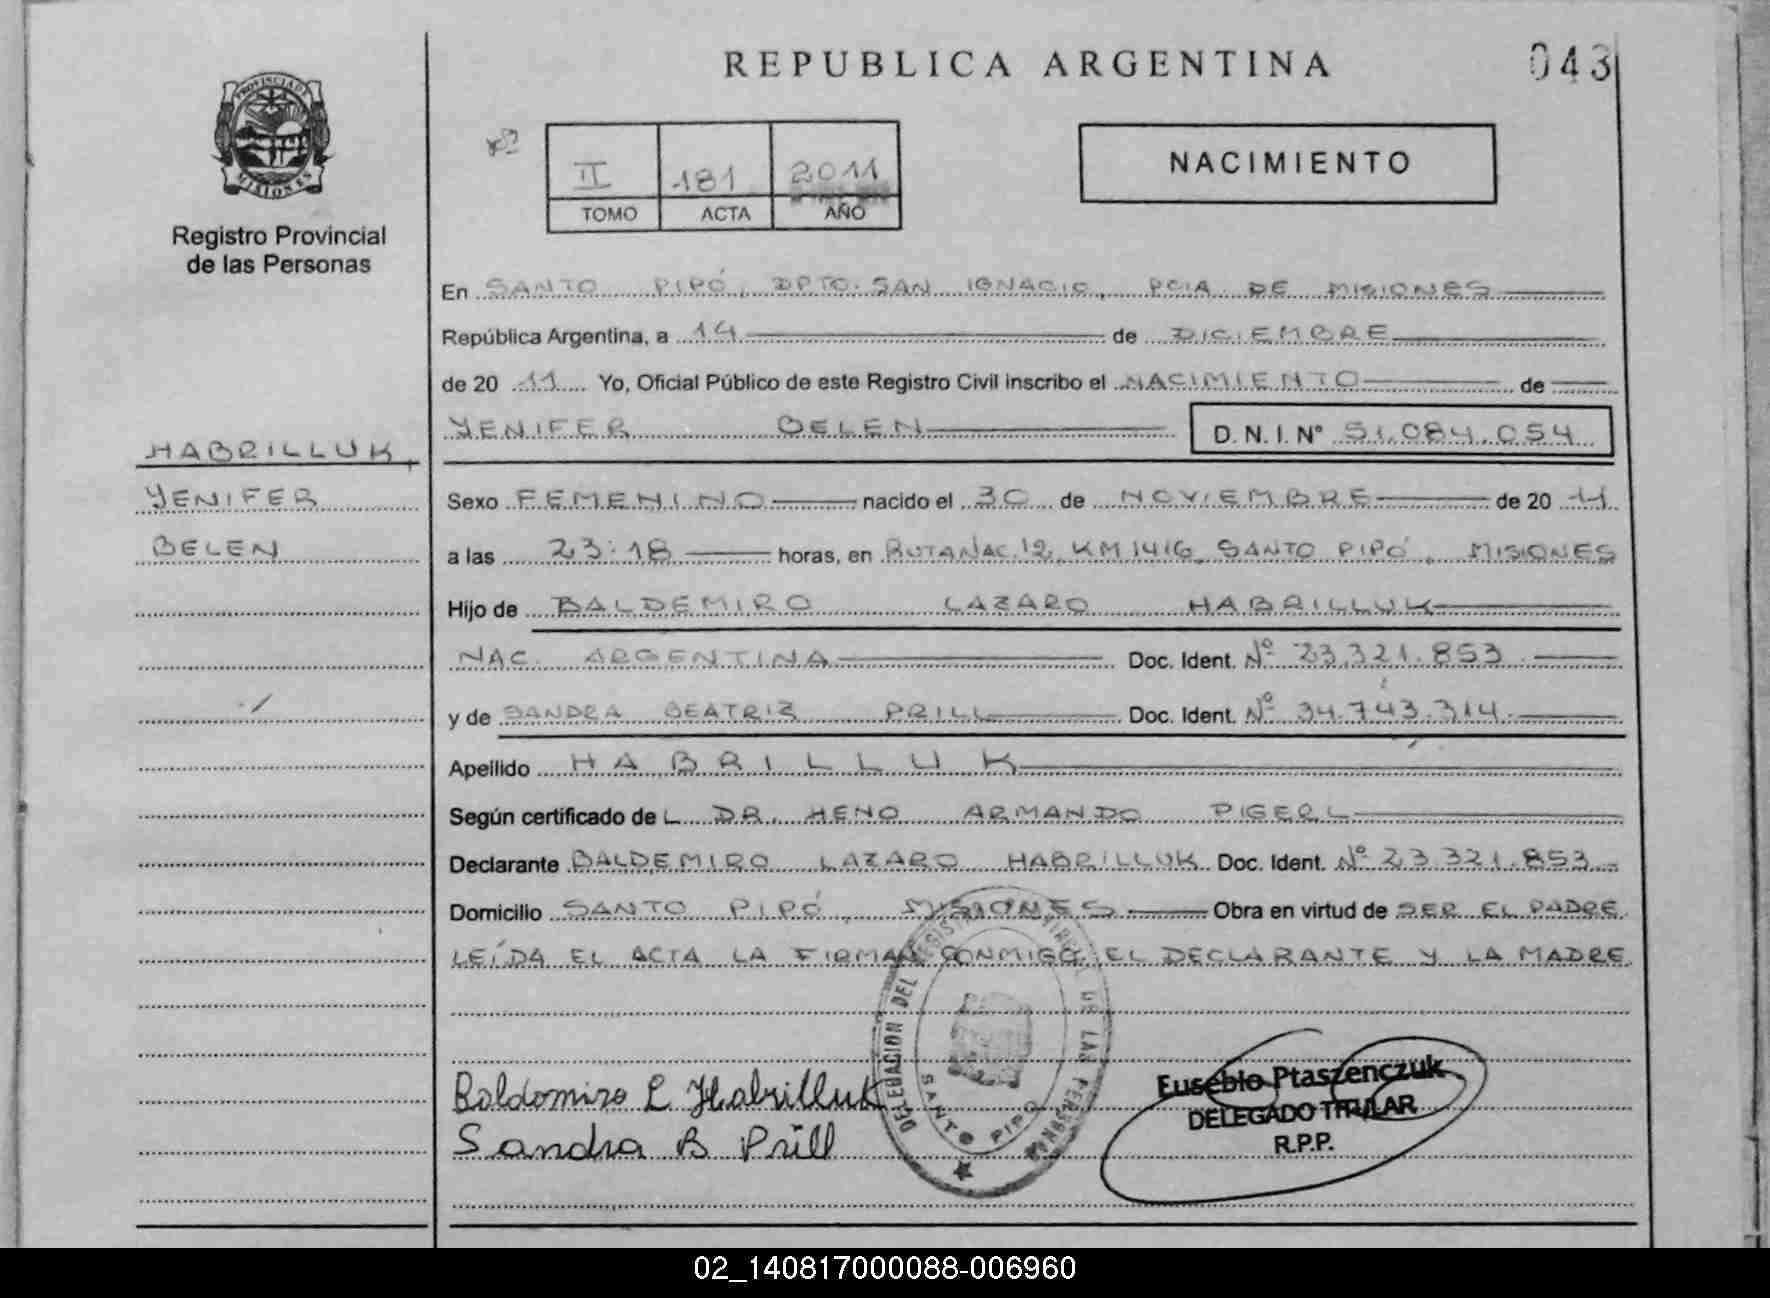 REPUBLICA ARGENTINA
043
PROVINCIA DE
MISIONES
Registro Provincial
de las Personas
II 181 2011
TOMO ACTA AÑO
NACIMIENTO
En SANTO PIPÓ, DPTO. SAN IGNACIO, PCIA DE MISIONES
República Argentina, a 14 de DICIEMBRE
de 20 11 Yo, Oficial Público de este Registro Civil inscribo el NACIMIENTO de
YENIFER BELEN D.N.I. N° 51.084.054
HABRILLUK,
YENIFER
BELEN
Sexo FEMENINO nacido el 30 de NOVIEMBRE de 20 11
a las 23:18 horas, en RUTA NAC. 12, KM 1416, SANTO PIPÓ, MISIONES
Hijo de BALDEMIRO LAZARO HABRILLUK
NAC. ARGENTINA Doc. Ident. Nº 23.321.853
y de SANDRA BEATRIZ PRILL Doc. Ident. Nº 34.743.314
Apellido HABRILLUK
Según certificado de L DR. HENO ARMANDO PIGERL
Declarante BALDEMIRO LAZARO HABRILLUK Doc. Ident. Nº 23.321.853
Domicilio SANTO PIPÓ, MISIONES Obra en virtud de SER EL PADRE
LEÍDA EL ACTA LA FIRMAN CONMIGO EL DECLARANTE Y LA MADRE
Baldomiro L Habrilluk
Sandra B Prill
DELEGACION DEL REGISTRO PROVINCIAL DE LAS PERSONAS
SANTO PIPO
Eusebio Ptaszenczuk
DELEGADO TITULAR
R.P.P.
02_140817000088-006960